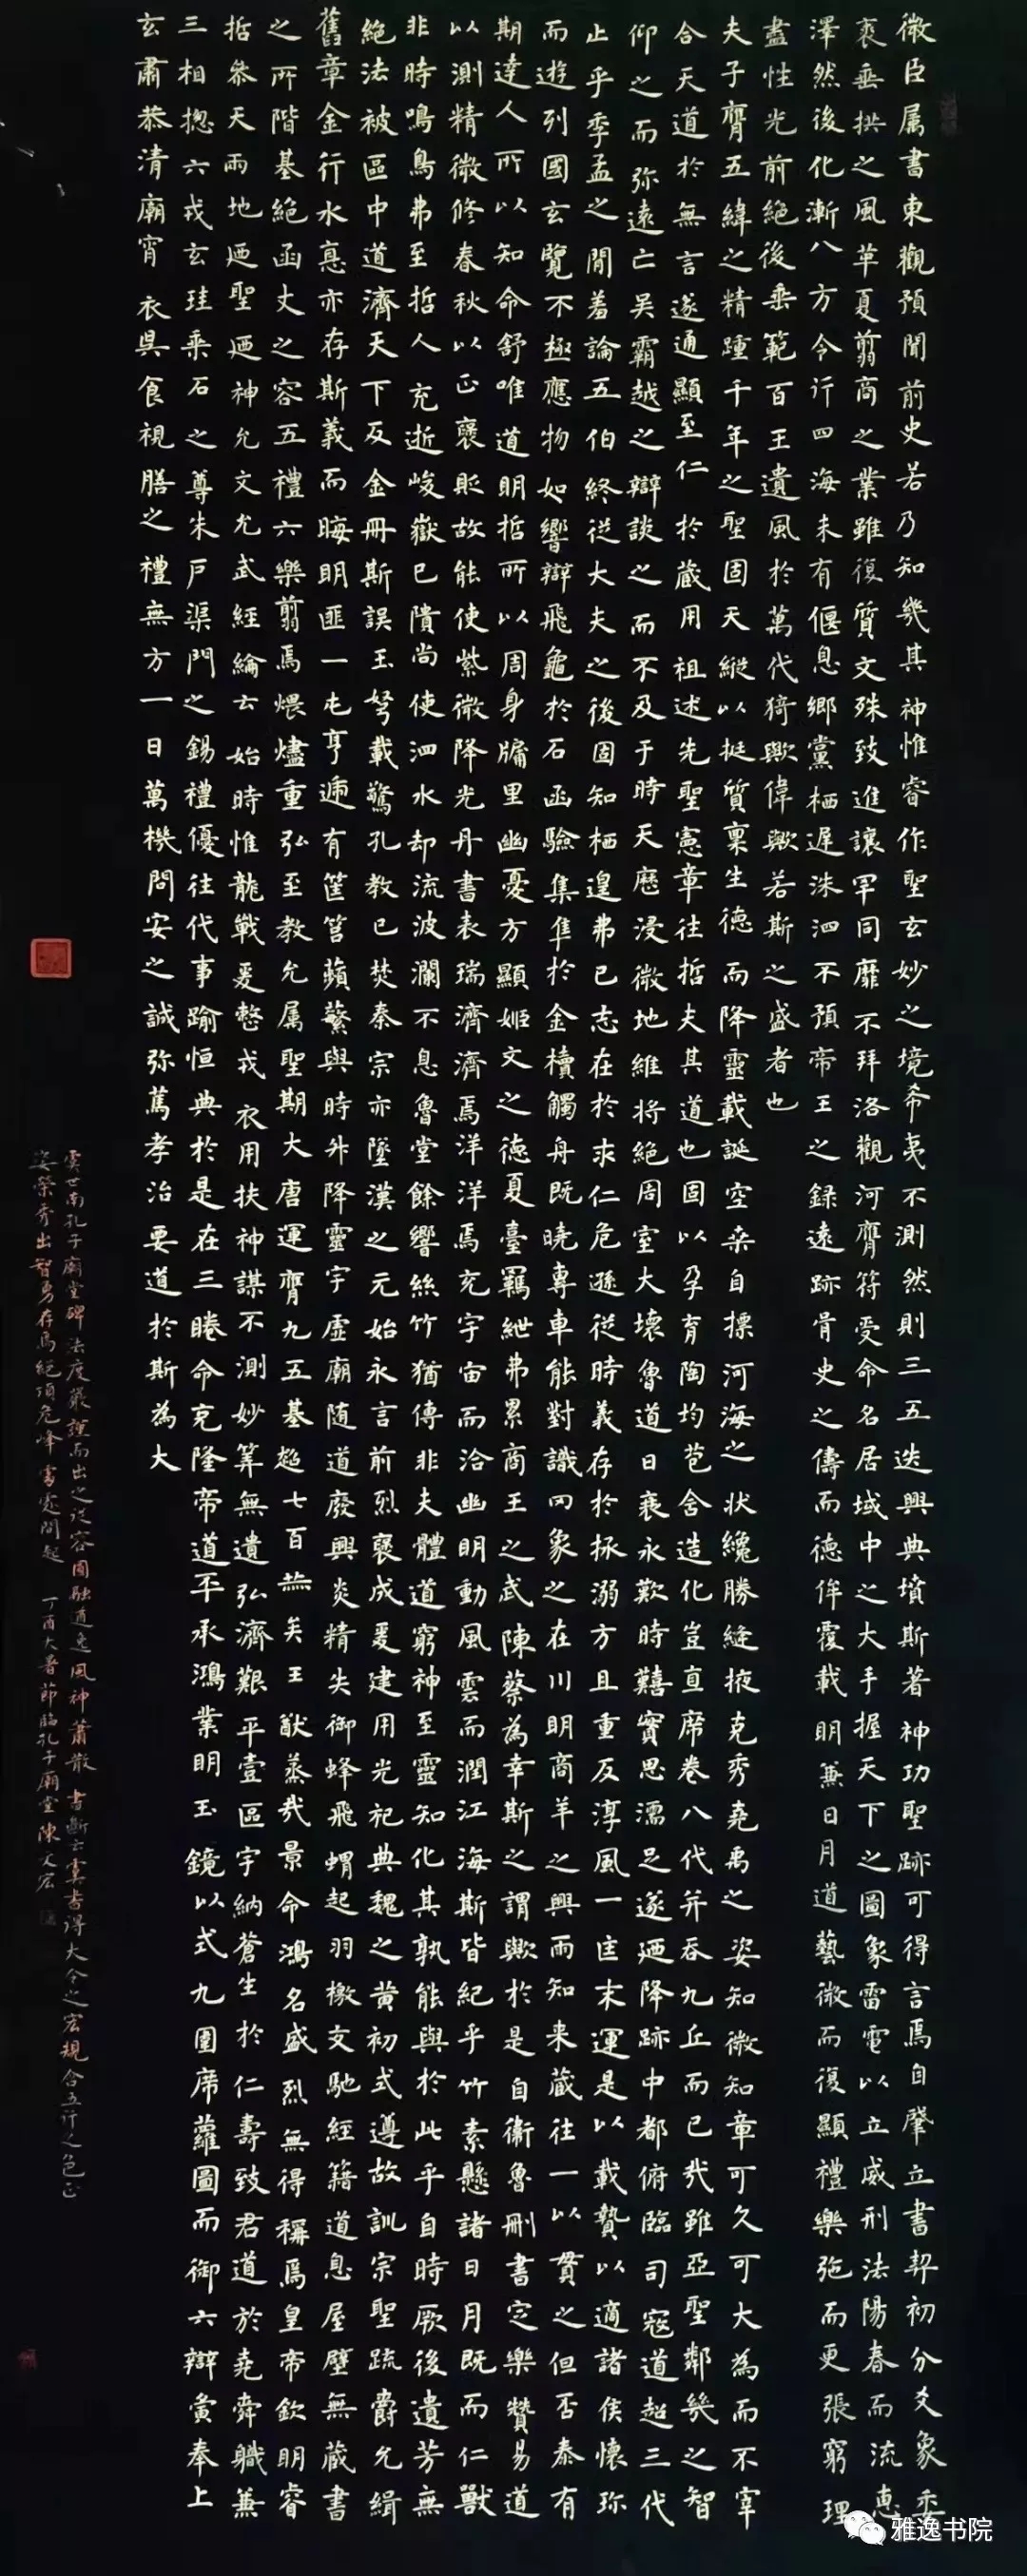 微臣属書東觀預聞前史若乃知幾其神惟睿作聖玄妙之境希夷不測然則三五迭興典墳斯著神功聖跡可得言焉自肇立書契初分爻象委
裘垂拱之風革夏翦商之業雖復質文殊致進讓罕同靡不拜洛觀河膺符受命名居域中之大手握天下之圖象雷電以立威刑法陽春而流恵
澤然後化漸八方令行四海未有偃息鄉黨栖遅洙泗不預帝王之録遠跡胥史之儔而德侔覆載明兼日月道藝微而復顯禮樂弛而更張窮理
盡性光前絕後垂範百王遺風於萬代猗歟偉歟若斯之盛者也
夫子膺五緯之精踵千年之聖固天縱以挺質稟生德而降靈載誕空桒自摽河海之状纔勝縫掖克秀堯禹之姿知微知章可久可大為而不宰
合天道於無言遂通顯至仁於蔵用祖述先聖憲章往哲夫其道也固以孕育陶均苞含造化豈直席巻八代并吞九丘而已㢤雖亞聖鄰幾之智
仰之而弥遠亡吴霸越之辯談之而不及于時天厯浸微地維将絕周室大壊魯道日衰永歎時囏實思濡足遂迺降跡中都俯臨司寇道超三代
止乎季孟之閒羞論五伯終従大夫之後固知栖遑弗已志在於求仁危遜従時義存於拯溺方且重反淳風一匡末運是以載贄以適諸侯懐珎
而遊列國玄覽不極應物如響辯飛龜於石函驗集隼於金櫝觸舟既曉専車能對識罔象之在川明商羊之興雨知来蔵往一以貫之但否泰有
期達人所以知命舒唯道明哲所以周身牖里幽憂方顯姬文之德夏臺羈紲弗累商王之武陳蔡為幸斯之謂歟於是自衛魯刪書定樂贊易道
以測精微修春秋以正褒貶故能使紫微降光丹書表瑞濟濟焉洋洋焉充宇宙而洽幽明動風雲而潤江海斯皆紀乎竹素懸諸日月既而仁獸
非時鳴鳥弗至哲人充逝峻嶽已隤尚使泗水却流波瀾不息魯堂餘響絲竹猶傳非夫體道窮神至靈知化其孰能與於此乎自時厥後遺芳無
絕法被區中道濟天下及金冊斯誤玉弩載驚孔教已焚秦宗亦墜漢之元始永言前烈褒成爰建用光祀典魏之黄初式遵故訓宗聖䟽爵允緝
舊章金行水悳亦存斯義而晦明匪一屯亨逓有筐筥蘋蘩與時升降靈宇虚廟随道廢興炎精失御蜂飛蝟起羽檄交馳經籍道息屋壁無蔵書
之所階基絕函丈之容五禮六樂翦焉煨燼重弘至教允属聖期大唐運膺九五基超七百赫矣王猷蒸㢤景命鴻名盛烈無得稱焉皇帝欽明睿
哲叅天兩地廼聖廼神允文允武經綸云始時惟龍戰爰整戎衣用扶神謀不測妙筭無遺弘濟艱平壹區宇納蒼生於仁壽致君道於堯舜職兼
三相揔六戎玄珪乘石之尊朱戸渠門之錫禮優往代事踰恒典於是在三睠命克隆帝道丕承鴻業明玉鏡以式九圍席蘿圖而御六辯寅奉上
玄肅恭清廟宵衣昃食視膳之禮無方一日萬機問安之誠弥篤孝治要道於斯為大
虞世南孔子廟堂碑法度嚴謹而出之従容圓融遒逸風神蕭散書斷云虞書得大令之宏規含五行之色正
姿榮秀出智勇存焉絕頂危峰處間起丁酉大暑節臨孔子廟堂陳文宏
雅逸书院